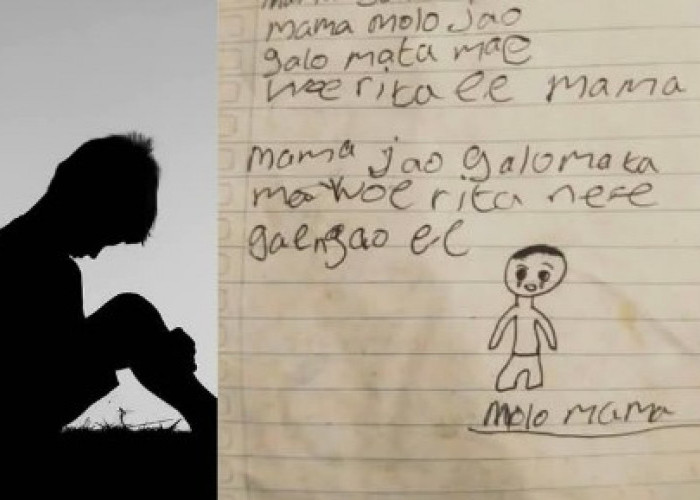 mama molo Jao
galo mata mae
woe rita ee mama
mama jao galomata
mae woe rita nee
gaengao ee
molo mama